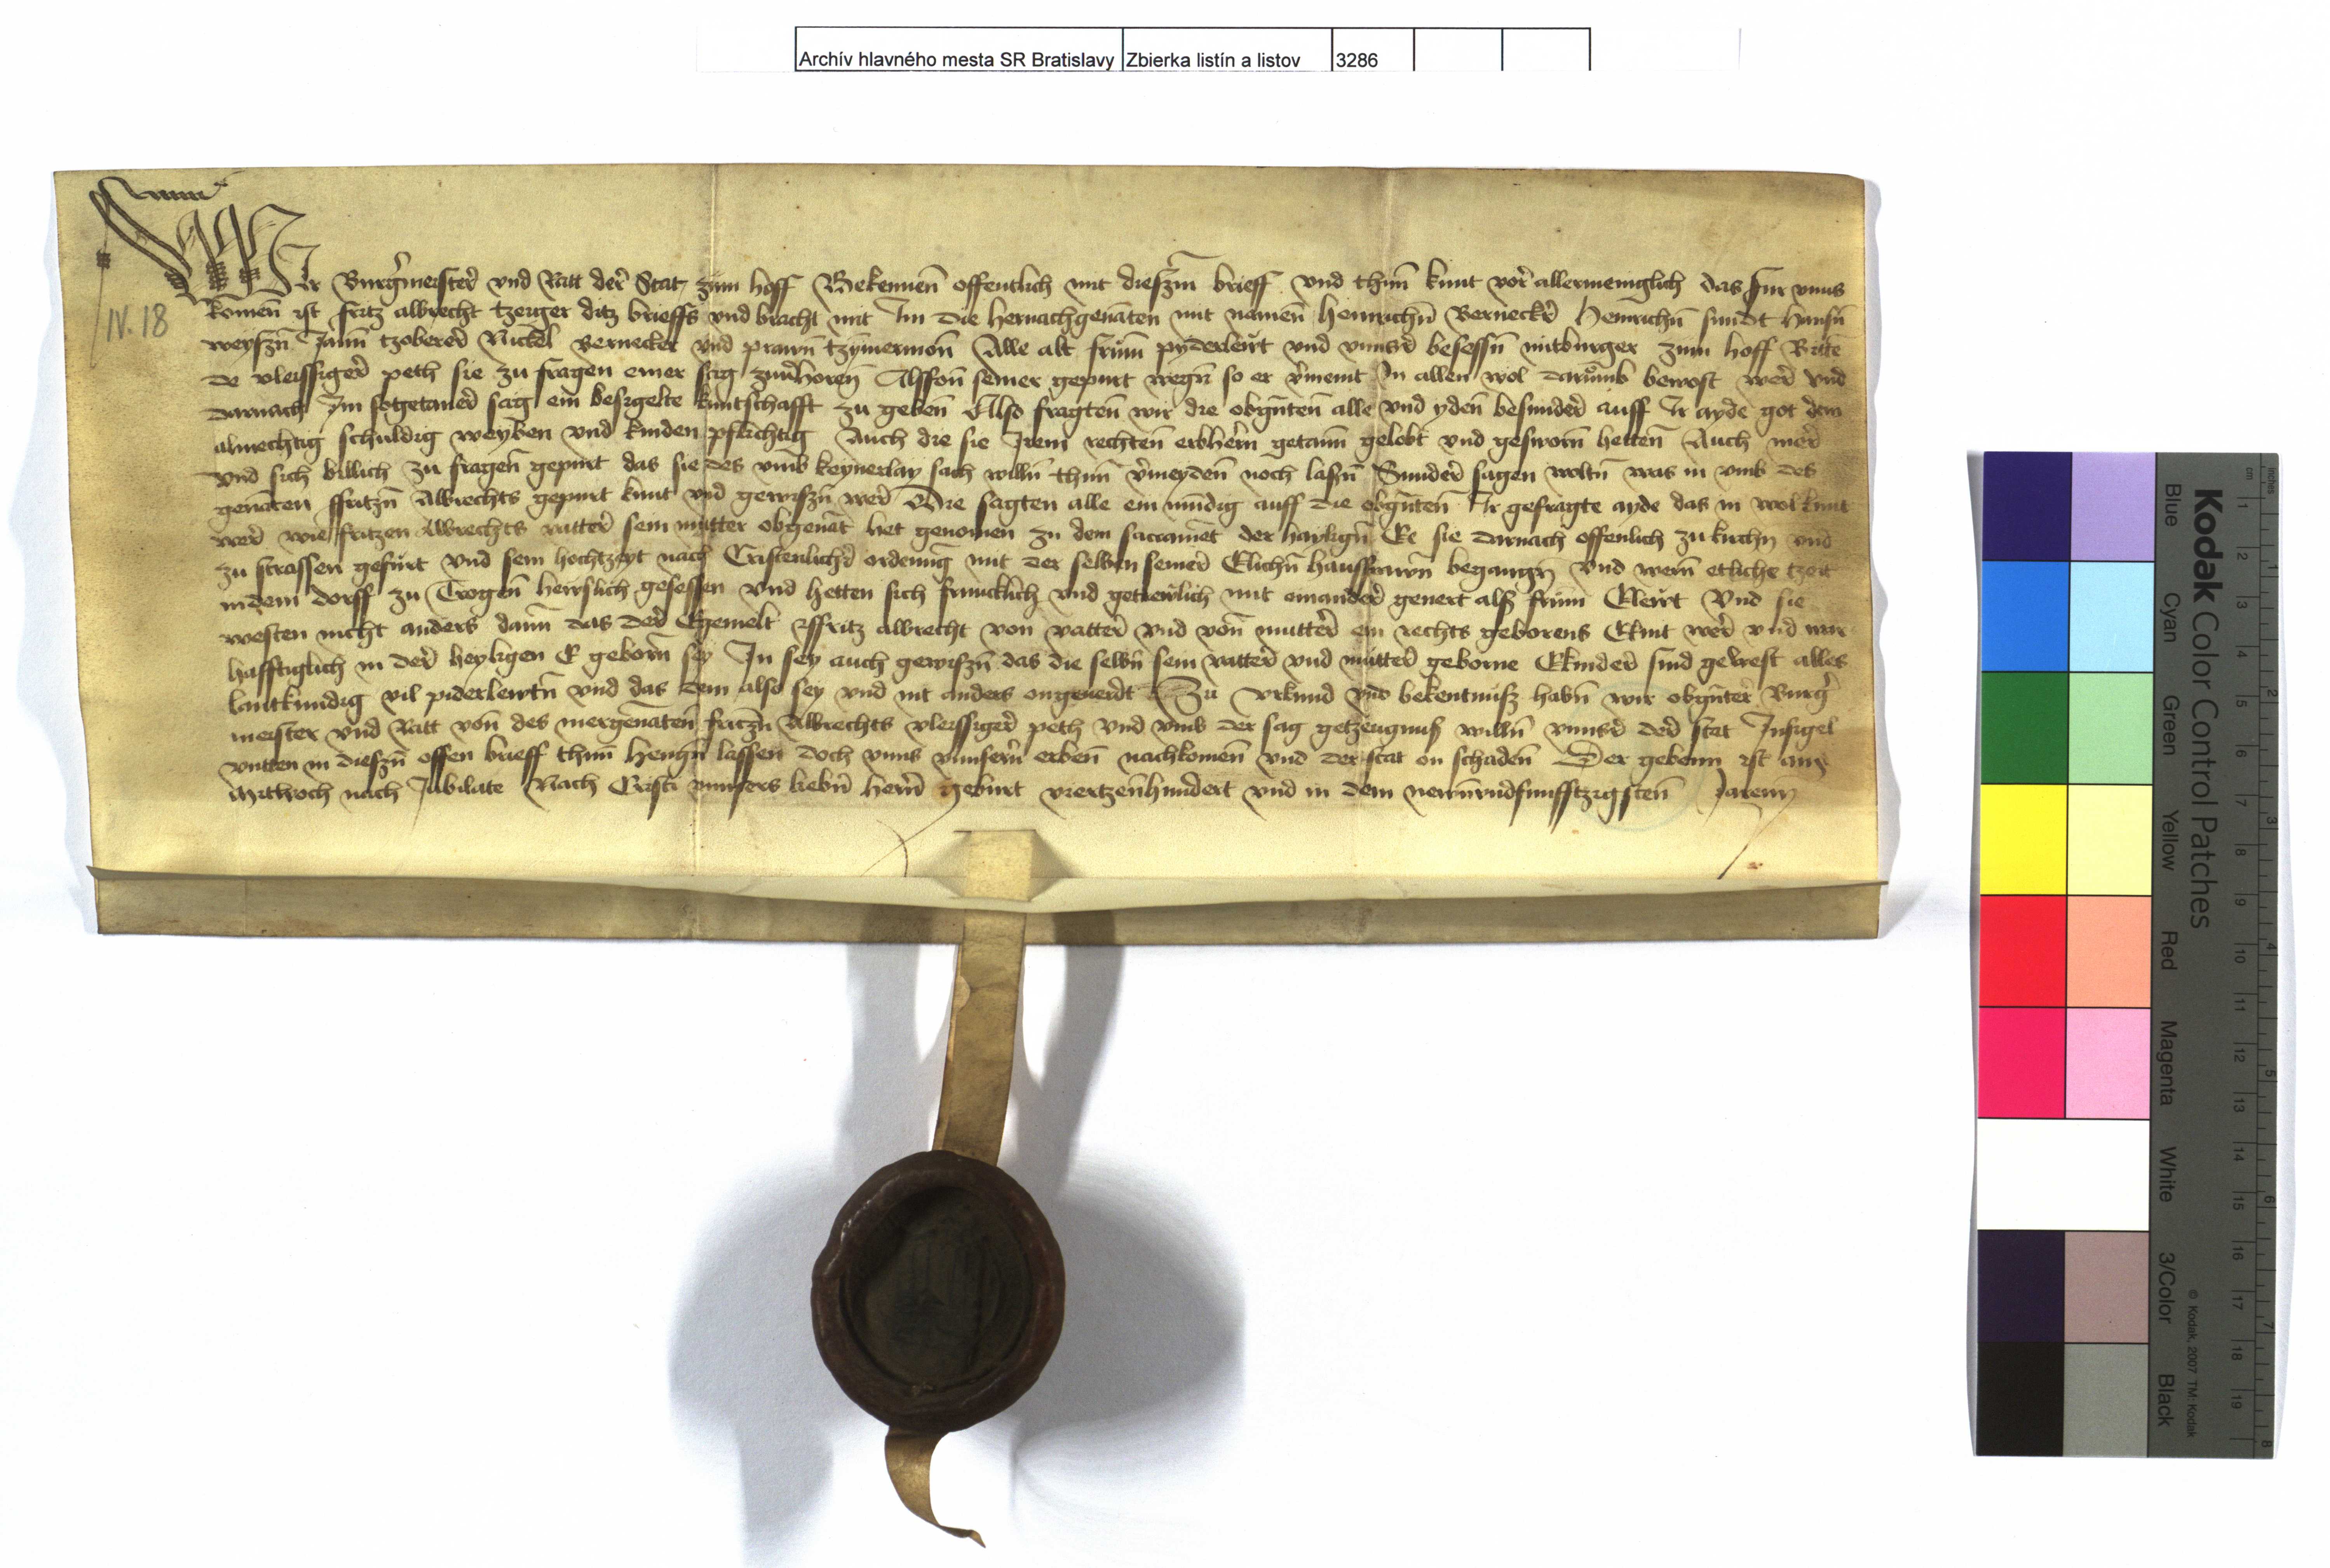 Archív hlavného mesta SR Bratislavy Zbierka listín a listov 3286
IV. 18
WIr Burgermeister vnd Ratt der Stat zum hoff Bekennen offentlich mit dieszm brieff vnd thun kunt vor allermeniglich das fur vnns
komen ist fritz albrecht tzeiger ditz brieffs vnd bracht mit Im die hernachgenāten mit namen heinrichn Bernecker heinrichn sundt hansn
weyszn Jann tzoberer Nickel Bernecker vnd prawn tzymermon Alle alt frūm pyderlewt vnd vnnser besessn mitburger zum hoff Bitten
de vleissiger peth sie zu fragen einer sag zuuerhoren Alsson seiner gepurt wegn so er vermeint In allen wol darumb bewost wer vnd
darnach Im sotgetaner sag ein besigelte kuntschafft zu geben Also fragten wir die obgnten alle vnd yden besunder auff Ir ayde got dem
almechtig schuldig weyben vnd kinden pflichtig Auch die sie Irem rechten erbhern getann gelobt vnd gesworn hetten Auch mer
vnd sich billich zu fragen gepurt das sie des vmb keynerlay sach willn thun vermeyden noch lassn Sunder sagen woltn was in vmb des
genāten ffritzn Albrechts gepurt kunt vnd gewiszn wer Die sagten alle ein mūdig auff die obgnten Ir gefragte ayde das in wol kunt
wer wie fritzen Albrechts vatter sein mutter obgenāt het genomen zu dem sacramēt der haylign Ee sie darnach offenlich zu kirchn vnd
zu strassen gefurt vnd sein hochtzeyt nach Cristenlicher ordenūg mit der selben seiner Elichn hausfrawn begangn vnd wern etliche tzeit
in dem dorff zu Trogen heuslich gesessen vnd hetten sich frumcklich vnd getrewlich mit einander genert alsz frūm Elewt Vnd sie
westen nicht anders dann das der Egemelt ffritz albrecht von vatter vnd von mutter ein rechts geborens Ekint wer vnd war
hafftiglich in der heyligen E geborn sey In sey auch gewiszn das die selbn sein vatter vnd mutter geborne Ekinder sind gewest alles
lantkundig vil piderlewtn vnd das dem also sey vnd nit anders ongeuerdt Zu vrkund vnd bekentnusz habn wir obgnter Burger
meister vnd Ratt von des mergenāten fritzn Albrechts vleissiger peth vnd vmb der sag getzeugnusz willn vnnser der stat Insigel
vntten in dieszn offen brieff thun hengn lassen doch vnns vnnsern erben nachkomen vnd der stat on schaden Der geben ist am
Mitwoch nach Jubilate Nach Cristi vnnsers liebn hern geburt viertzenhundert vnd in dem newnvndfunfftzigsten Jaren
Kodak Color Control Patches
Blue Cyan Green Yellow Red Magenta White 3/Color Black
© Kodak, 2007 TM: Kodak
cm 1 2 3 4 5 6 7 8 9 10 11 12 13 14 15 16 17 18 19
inches 1 2 3 4 5 6 7 8